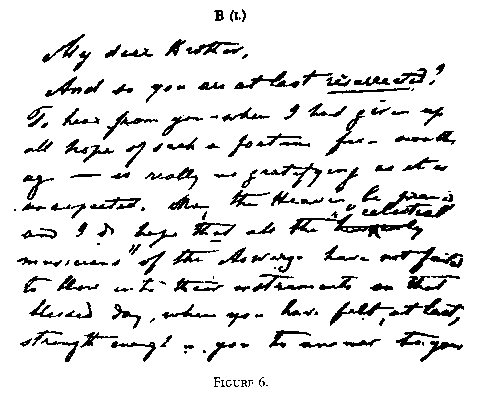 B (I.)
My dear Brother,
And so you are at last resurrected?
To hear from you when I had given up
all hope of such a fortune four months
ago — is really as gratifying as it is
unexpected. May the Heaven be praised
and I do hope that all the "heavenly celestial
musicians" of the Aswargo have not failed
to blow into their instruments on that
blessed day, when you have felt, at last,
strength enough in you to answer to your
FIGURE 6.